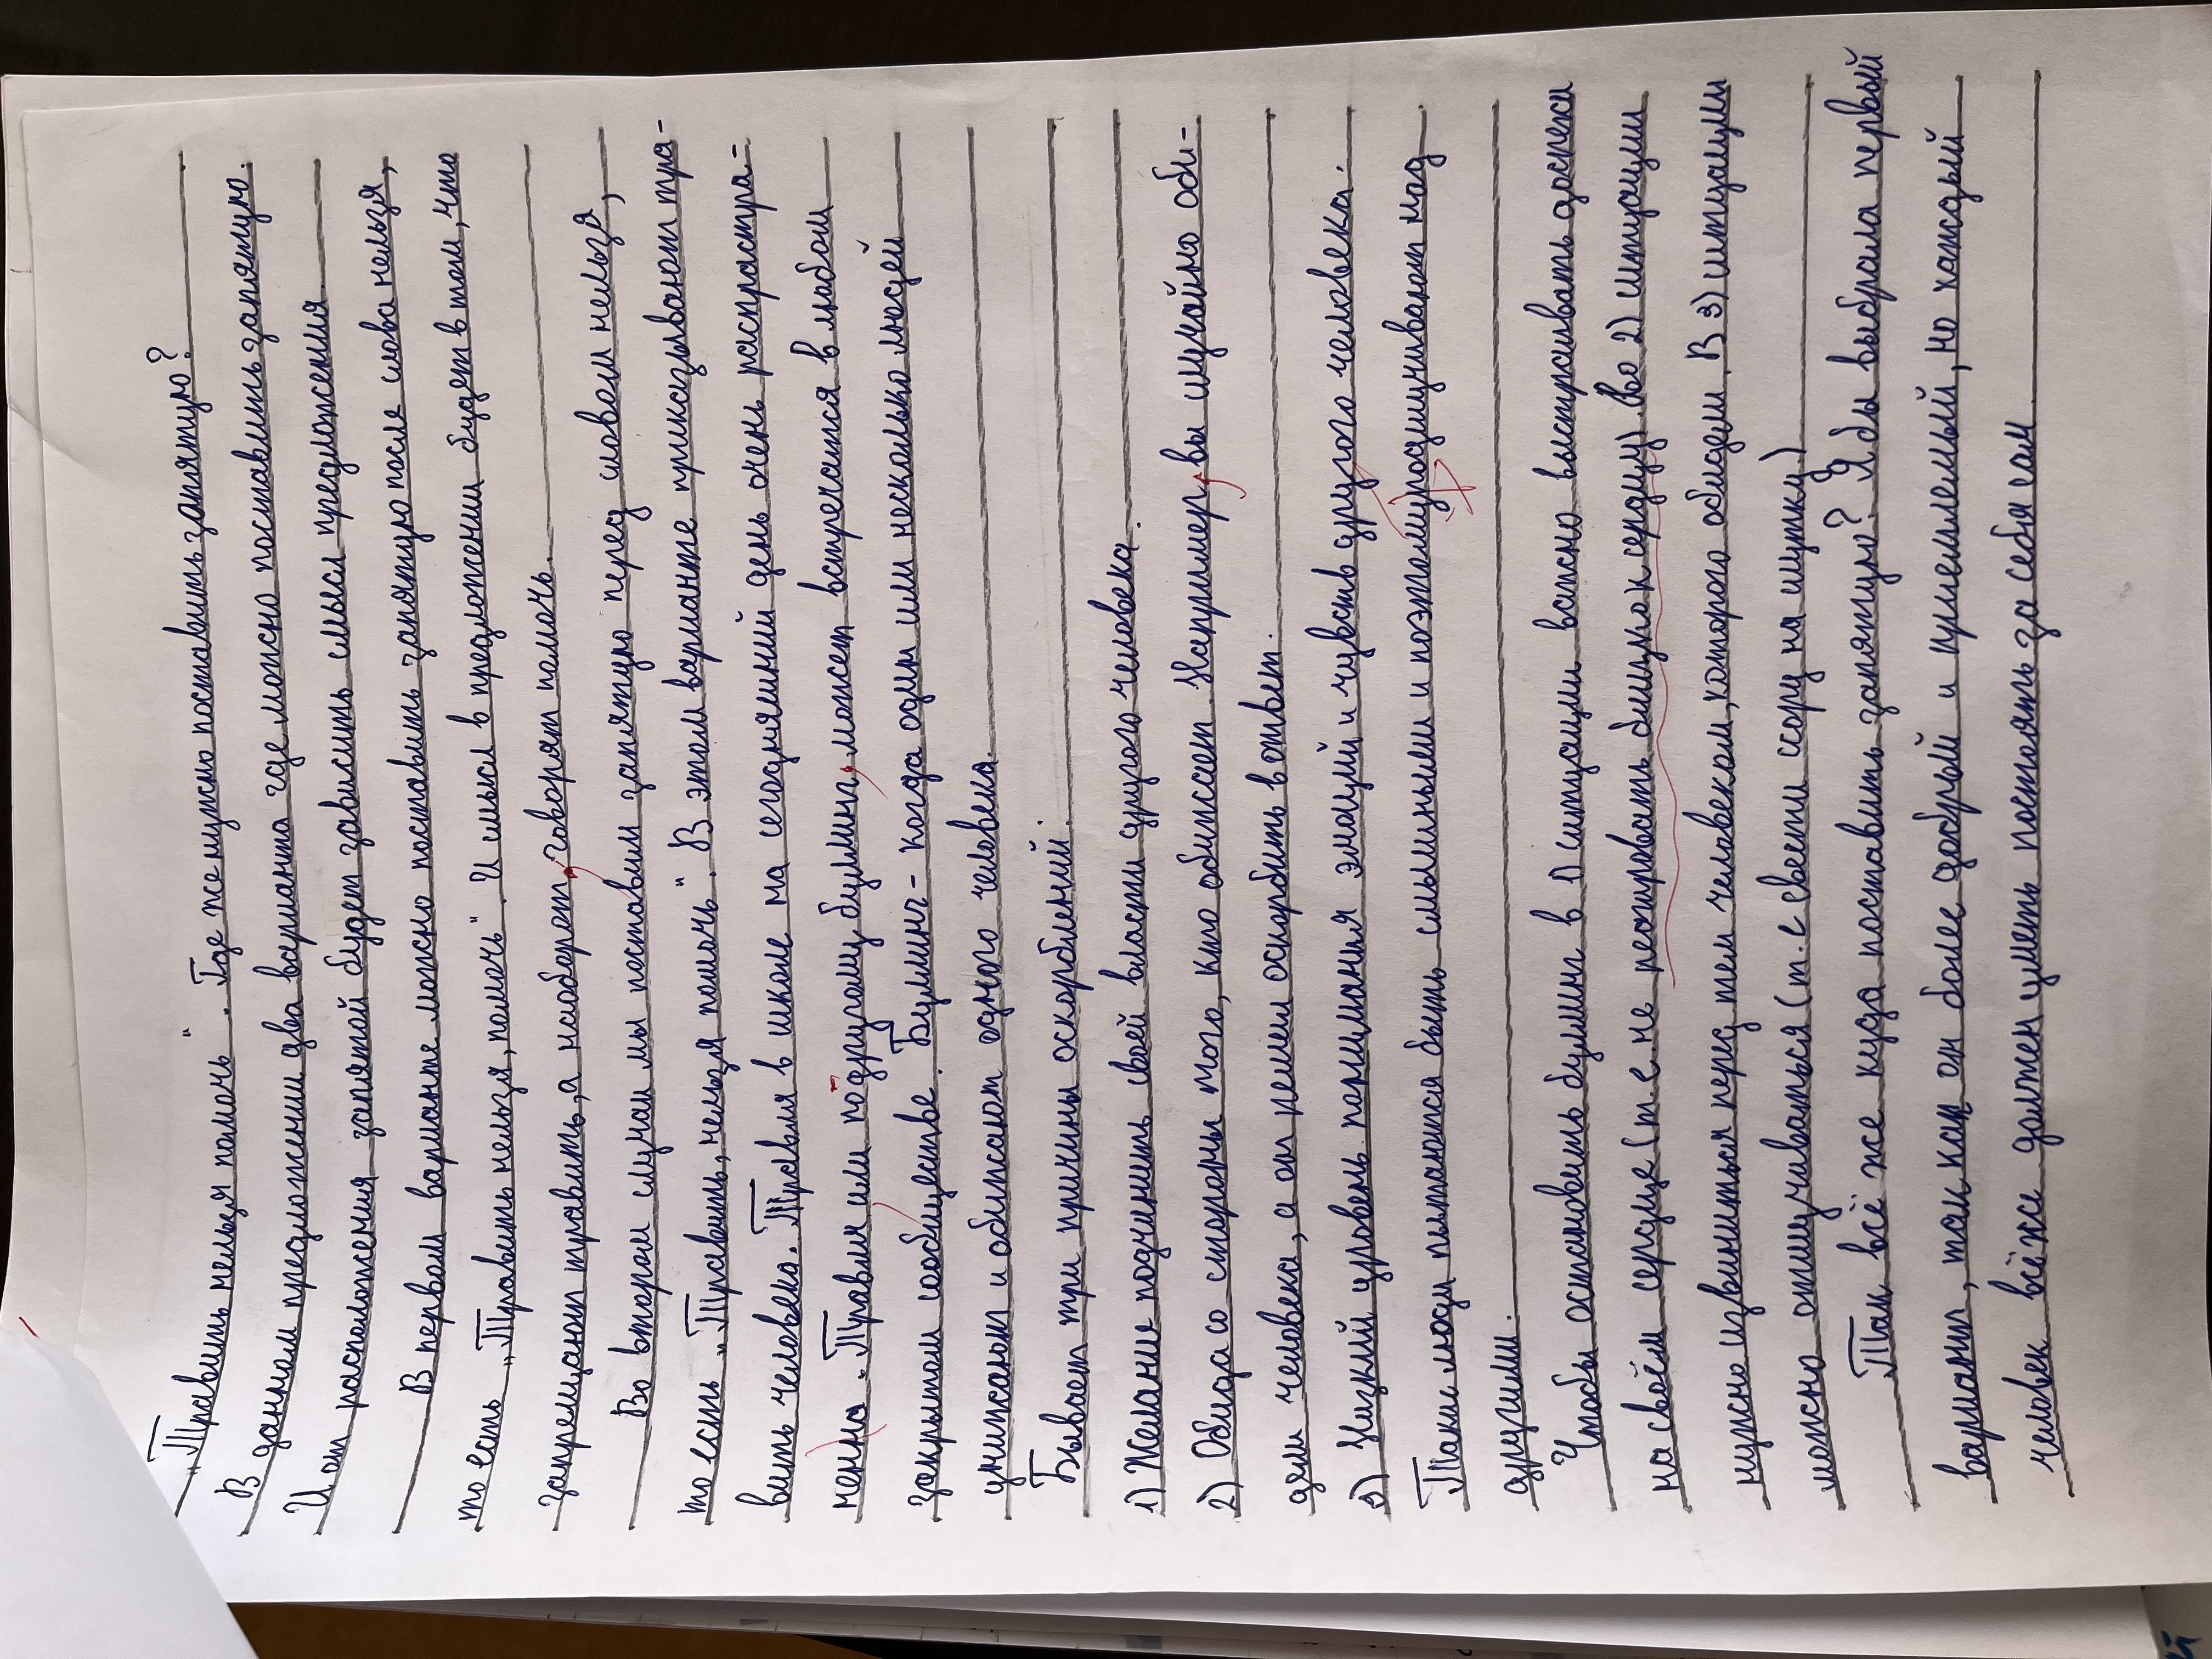 „Травить нельзя помочь". Где же нужно поставить запятую?
В данном предложении два варианта где можно поставить запятую.
И от расположения запятой будет зависить смысл предложения.
В первом варианте можно поставить запятую после слова нельзя,
то есть „Травить нельзя, помочь". И смысл в предложении будет в том, что
запрещают травить, а наоборот, говорят помочь.
Во втором случаи мы поставим запятую перед словом нельзя,
то есть „Травить, нельзя помочь". В этом варианте приказывают тра-
вить человека. Травля в школе на сегодняшний день очень распростра-
ненна. Травля или по-другому буллинг, может встречатся в любом
закрытом сообществе. Буллинг - когда один или несколько людей
унижают и обижают одного человека.
Бывает три причины оскорблений:
1) Желание подчинить своей власти другого человека.
2) Обида со стороны того, кто обижает. Например, вы случайно оби-
дели человека, а он решил оскорбить в ответ.
3) Низкий уровень понимания эмоций и чувств другого человека.
Такие люди пытаются быть смешными и поэтому подшучивают над
другими.
Чтобы остановить буллинг в 1) ситуации важно выстраивать доспехи
на своём сердце (т.е. не реагировать близко к сердцу). Во 2) ситуации
нужно извиниться перед тем человеком, которого обидели. В 3) ситуации
можно отшучиваться (т.е свести ссору на шутку)
Так всё же куда поставить запятую? Я бы выбрала первый
вариант, так как он более добрый и приемлемый, но каждый
человек всё же должен уметь постоять за себя сам.